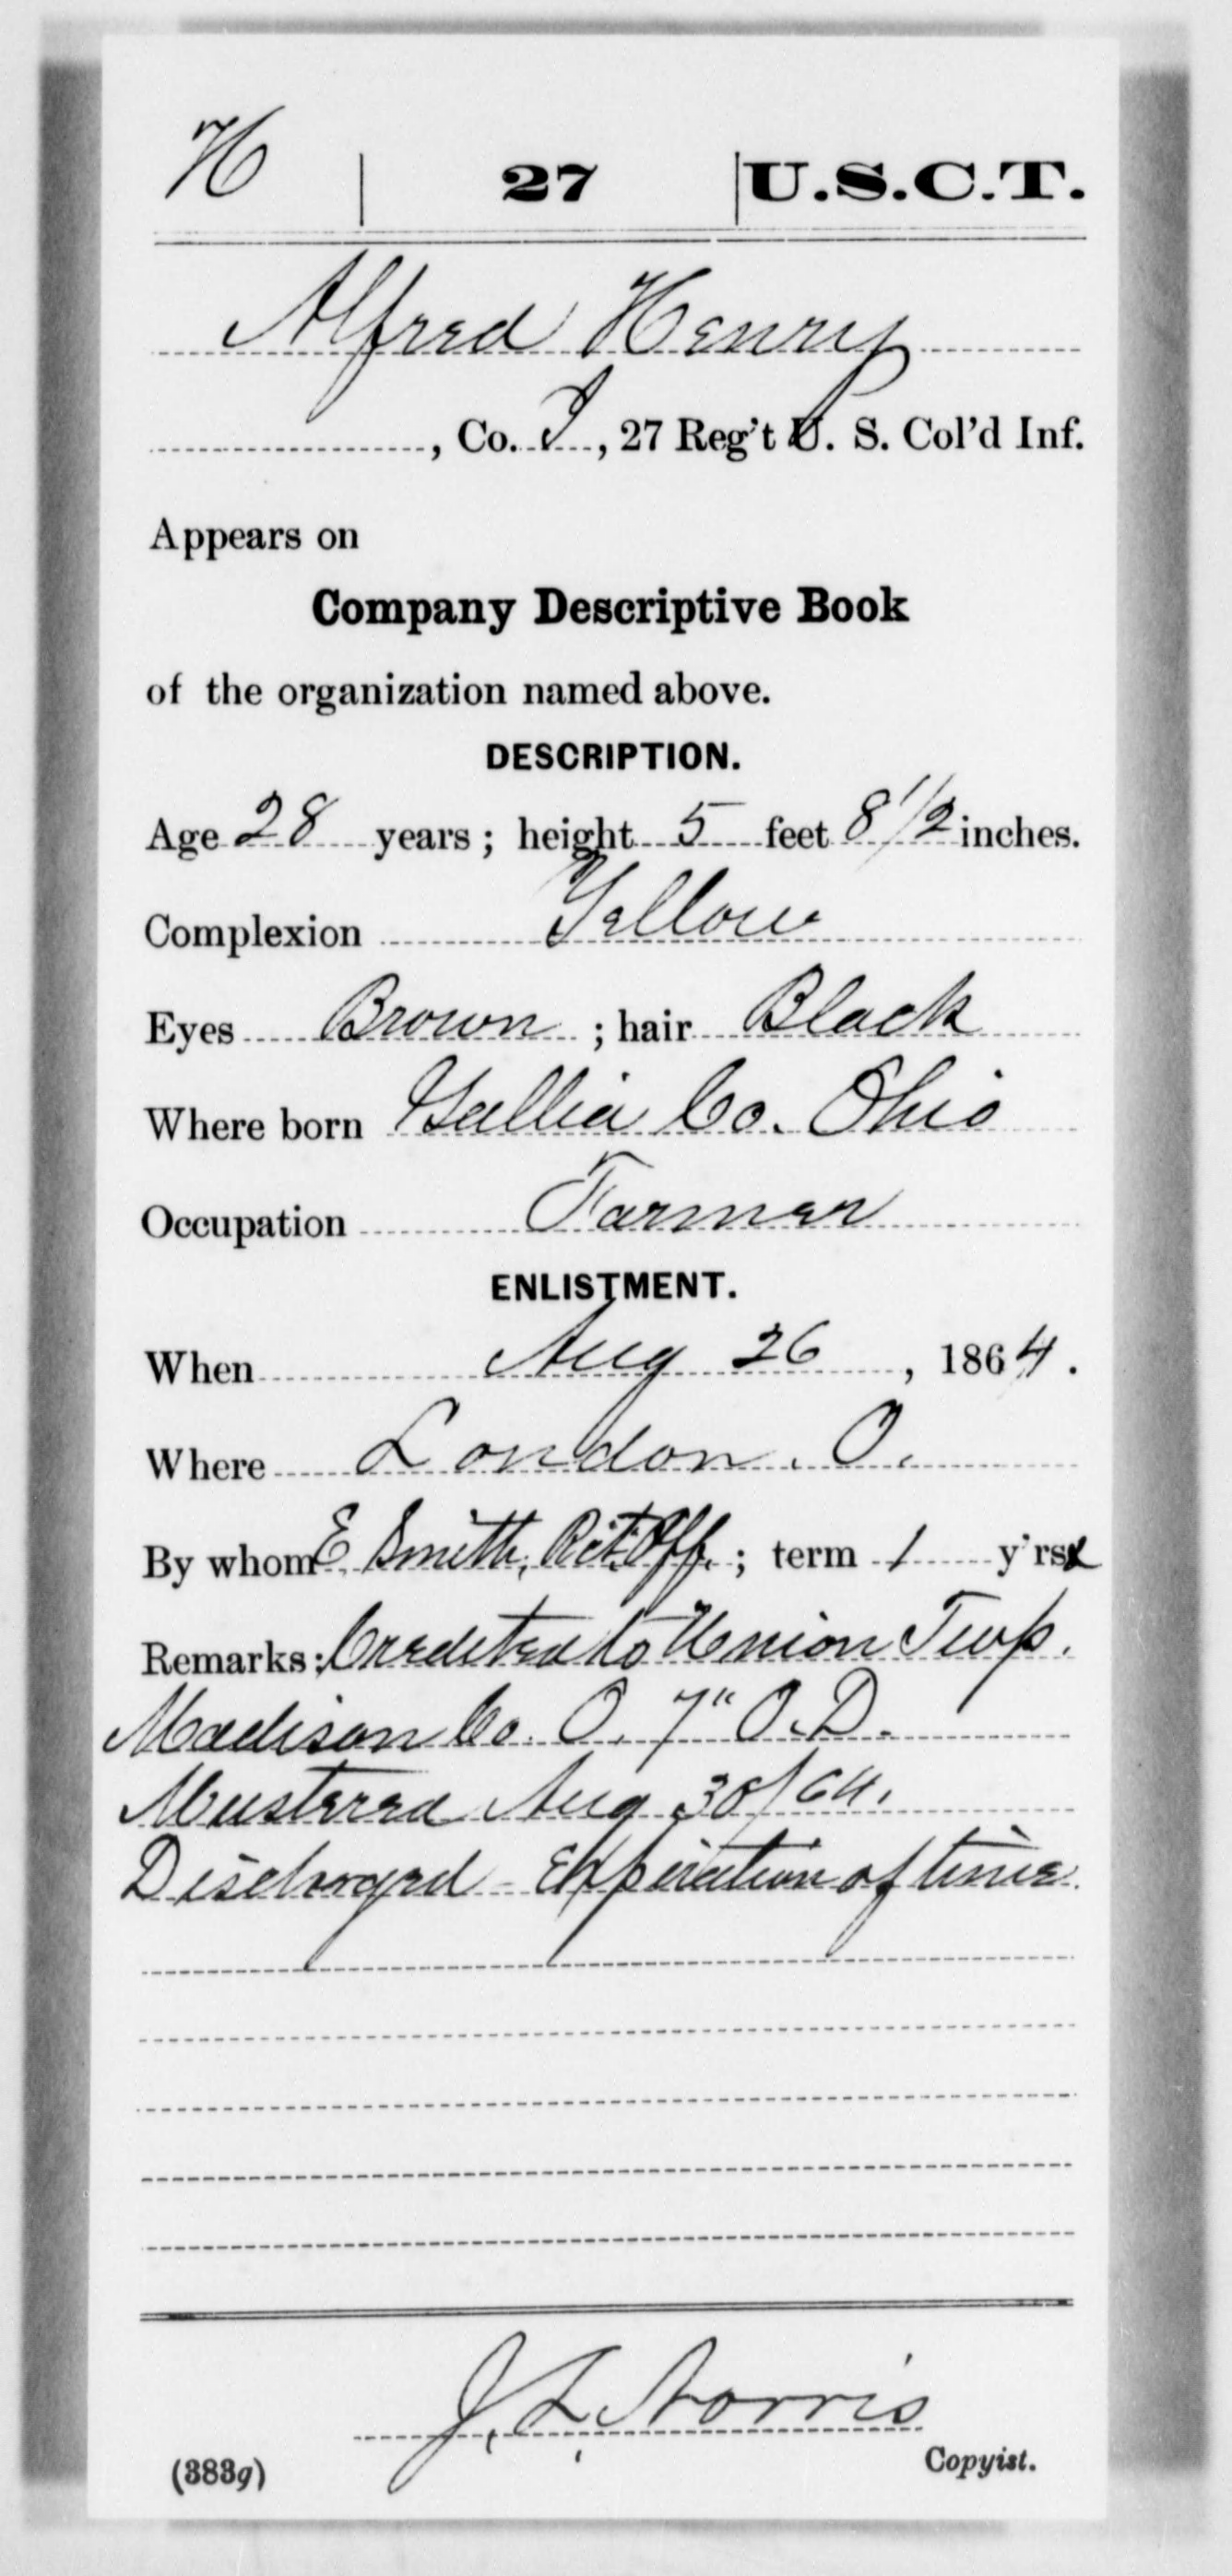 H | 27 | U.S.C.T.
Alfred Henry
, Co. I, 27 Reg't U. S. Col'd Inf.
Appears on
Company Descriptive Book
of the organization named above.
DESCRIPTION.
Age 28 years; height 5 feet 8 1/2 inches.
Complexion Yellow
Eyes Brown; hair Black
Where born Gallia Co. Ohio
Occupation Farmer
ENLISTMENT.
When Aug 26, 1864.
Where London. O.
By whom E Smith, Rct. Off.; term 1 y'rs
Remarks: Credited to Union Twp.
Madison Co. O. 7" O. D.
Mustered Aug 30/64.
Discharged - Expiration of time.
J. L. Norris
(383g) Copyist.